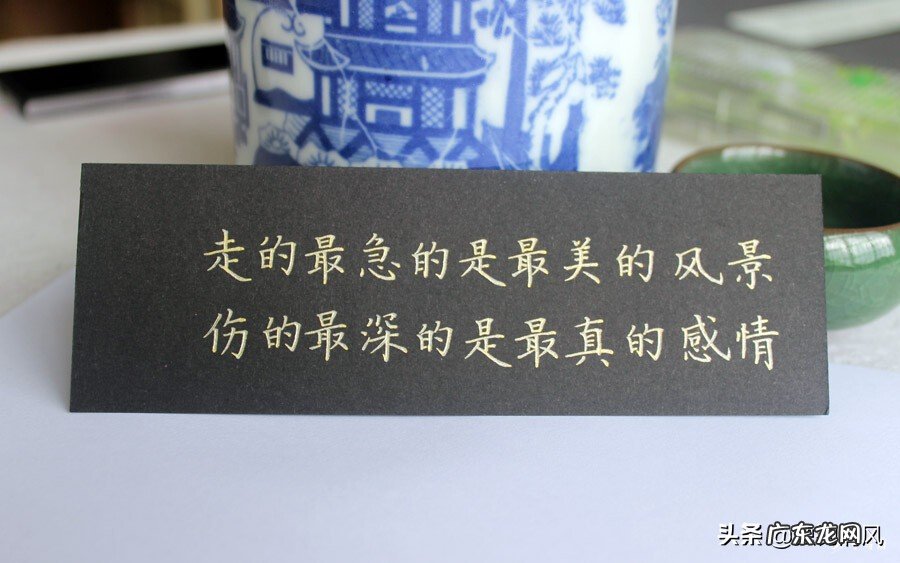 走的最急的是最美的风景
伤的最深的是最真的感情
头条 @东龙网